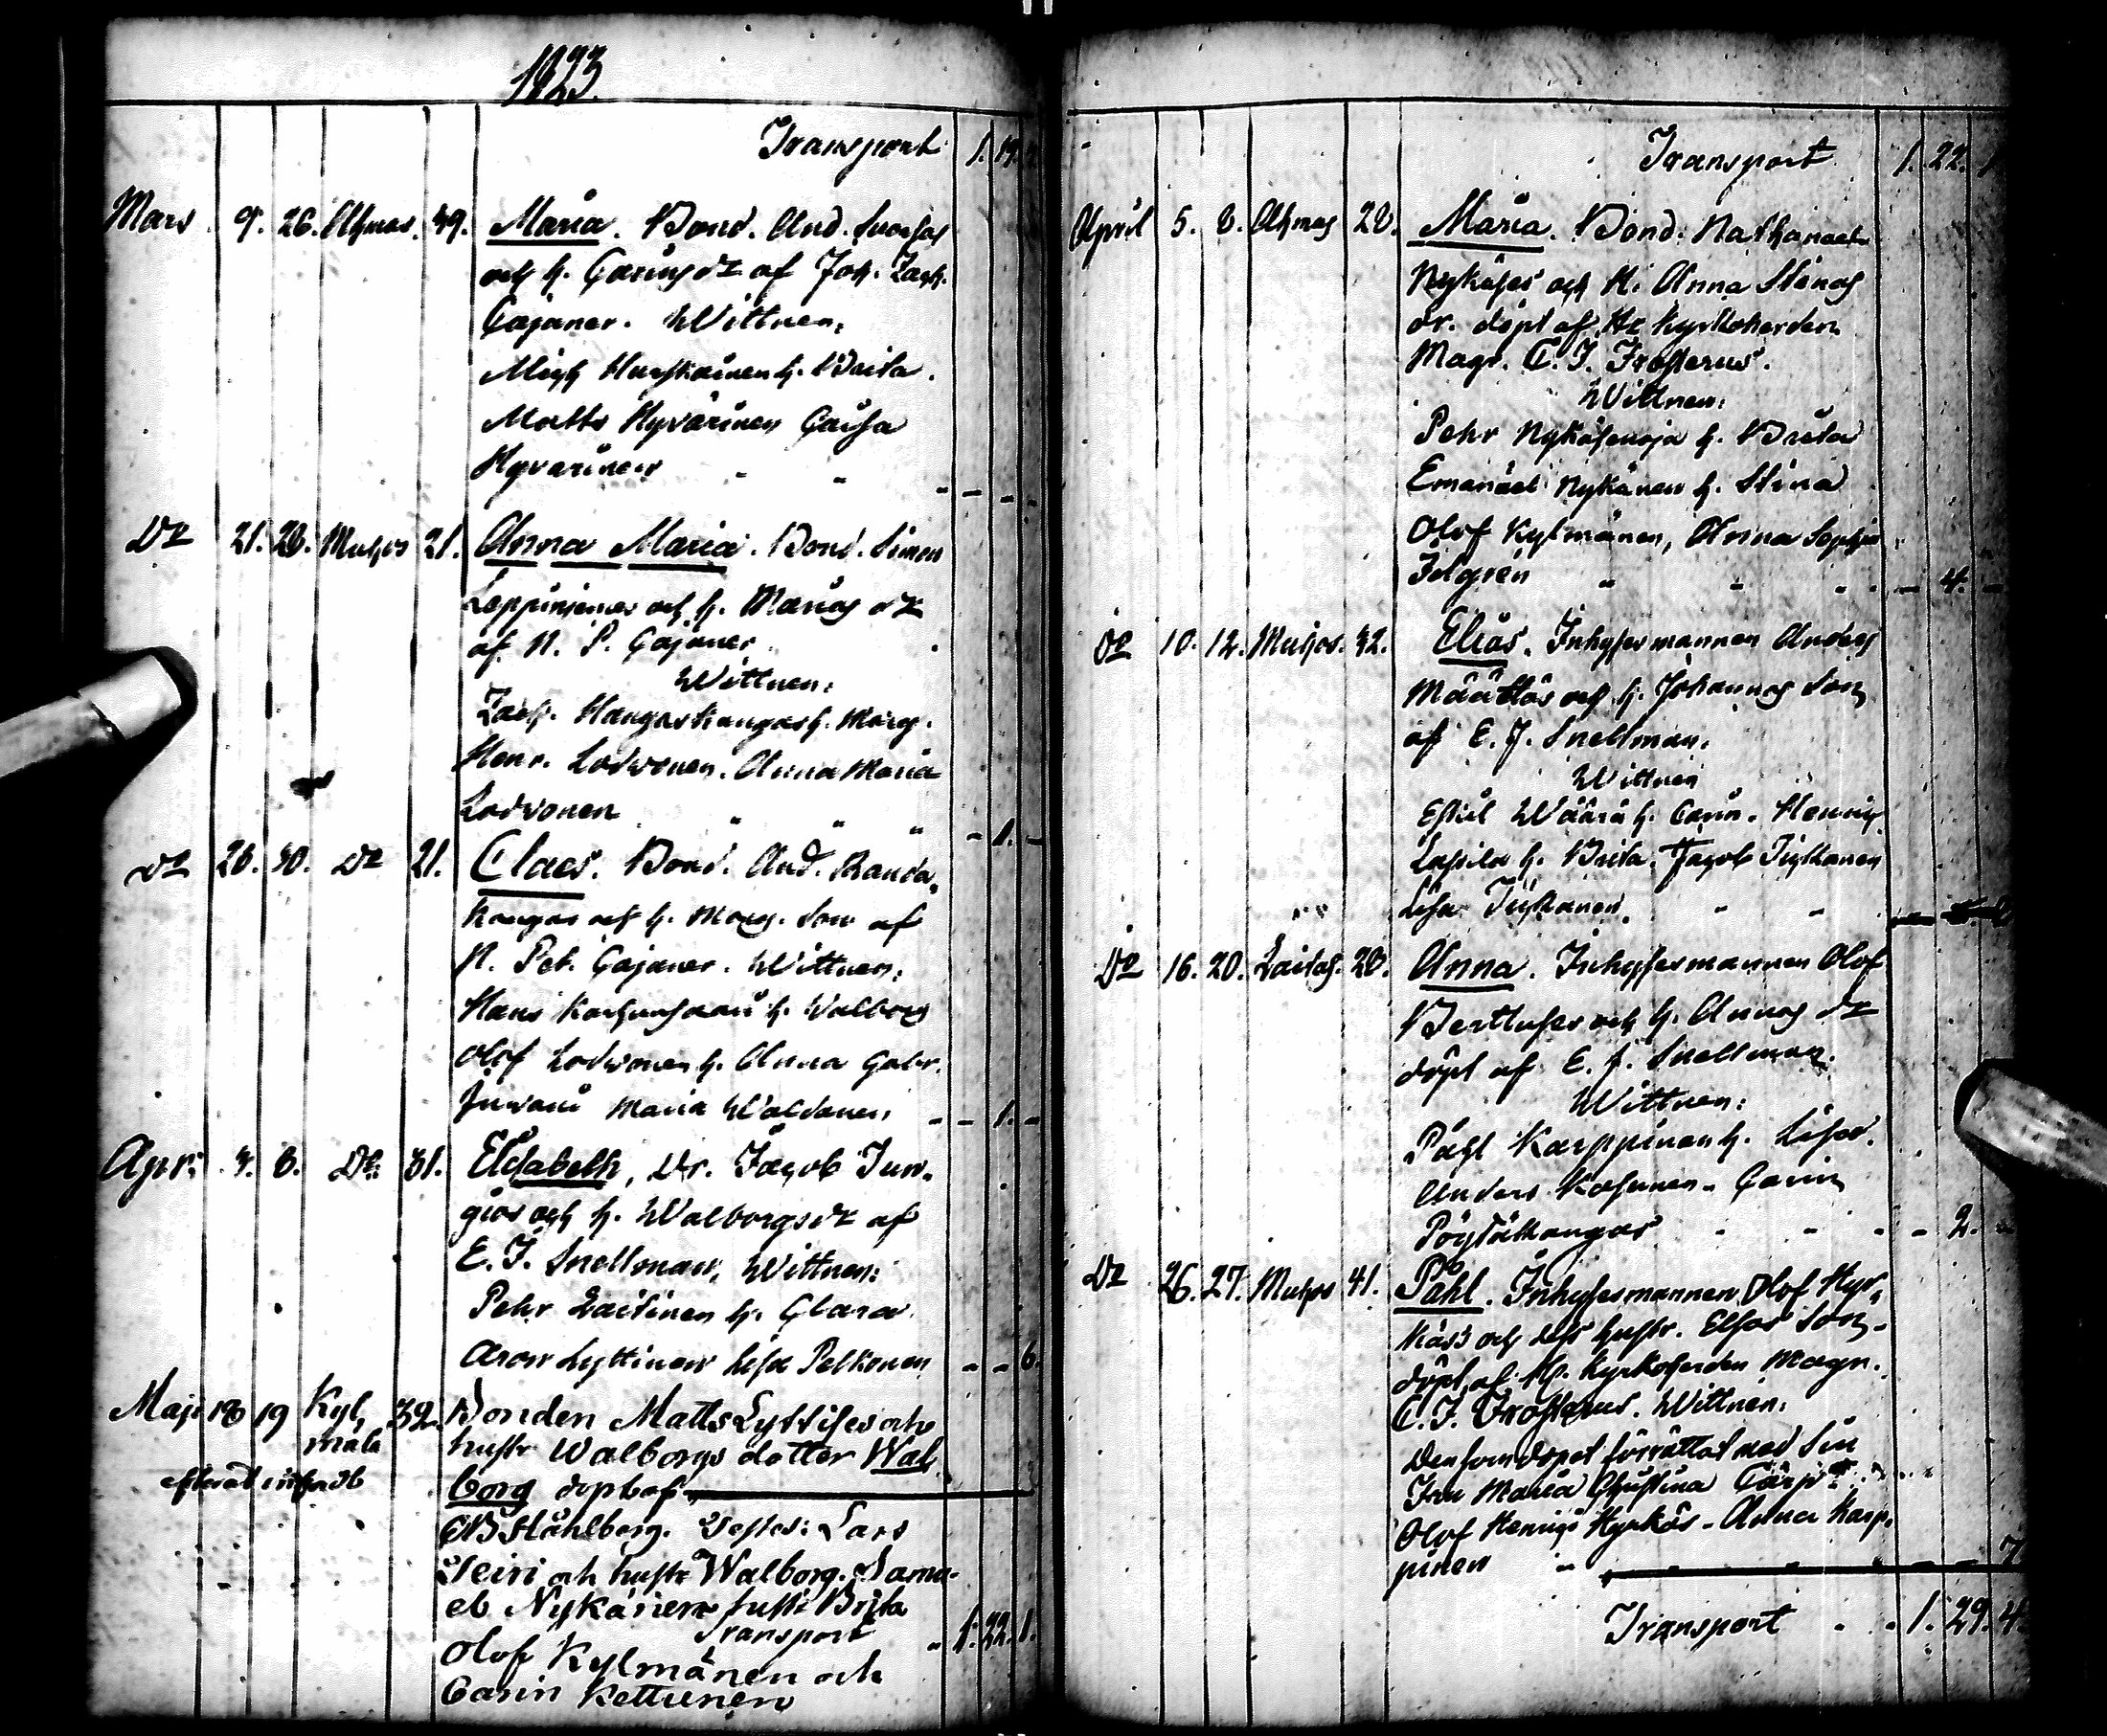 1823.
Transport 1. 19.
Mars 9. 26. Uhmas. 39. Maria. Bond. And.
och h. Carins dr af Joh. Zach.
Cajaner. Wittnen:
Mich Hurskainen h. Brita.
Matts Hyvärinen Caisa
Hyvärinen
Do 21. 28. Muhos 21. Anna Maria. Bond. Simon
Leppinjemes och h. Marias dr
af N. P. Cajaner
Wittnen:
Zach. Hangaskangas h. Marg.
Henr. Lodvonen. Anna Maria
Lodvonen - 1. -
Do 26. 30. Do 21. Claes. Bond. And. Randa-
kangas och h. Marg. Son af
N. Pet. Cajaner. Wittnen:
Hans h. Walborg
Olof Lodvonen h. Anna Gabr.
Juvani Maria - - 1. -
Apr: 3. 8. Do: 31. Elisabeth, Dr. Jacob Jun-
gios och h. Walborgs dr af
E. J. Snellman, Wittnen:
Pehr Laitinen h. Clara
Aron Lyttinen Lisa Pelkonen - - 6.
Maji 18 19 Kyl 32. Bonden Matts Lyttises och
mälä hustr Walborgs dotter Wal
efteråt infördt borg döpt af
CB Ståhlberg. Testes: Lars
Seiri och hustr Walborg. Samu-
el Nykänen hustr Brita
Transport 1. 22. 1.
Olof Kylmänen och
Carin Kettunen
Transport 1. 22. 1
April 5. 8. Uhmas 28. Maria. Bond. Nathanael
Nykäses och H. Anna Stinas
dr. döpt af Hr Kyrkoherden
Magr. C. J. Frosterus.
Wittnen:
Pehr Nykäsenoja h. Brita
Emanuel Nykänen h. Stina
Olof Kylmänen, Anna Sophia
Idgrén - 4. -
Do 10. 12. Muhos. 32. Elias. Inhysesmannen Anders
Määttäs och h. Johannas Son
af E. J. Snellman.
Wittnen
Eskil Wäärä h. Carin. Henric
Lassila h. Brita. Jacob Tuskanen
Lisa Tuskanen.
Do 16. 20. Laitas. 28. Anna. Inhysesmannen Olof
Berttuses och h. Annas dr
döpt af E. J. Snellman.
Wittnen:
Påhl Karppinen h. Lisa.
Anders Kosunen - Carin
Pöytäkangas - 2. -
Do 26. 27. Muhos 41. Påhl. Inhysesmannen Olof Hyr-
käs's och dess hustr. Elsas Son-
döpt af Hr. Kyrkoherden Magr.
C. J. Frosterus. Wittnen:
Den som dopet förrättat med Sin
Fru Maria Christina
Olof Henrics Hyrkäs - Anna Karp-
pinen 7
Transport 1. 29. 4.